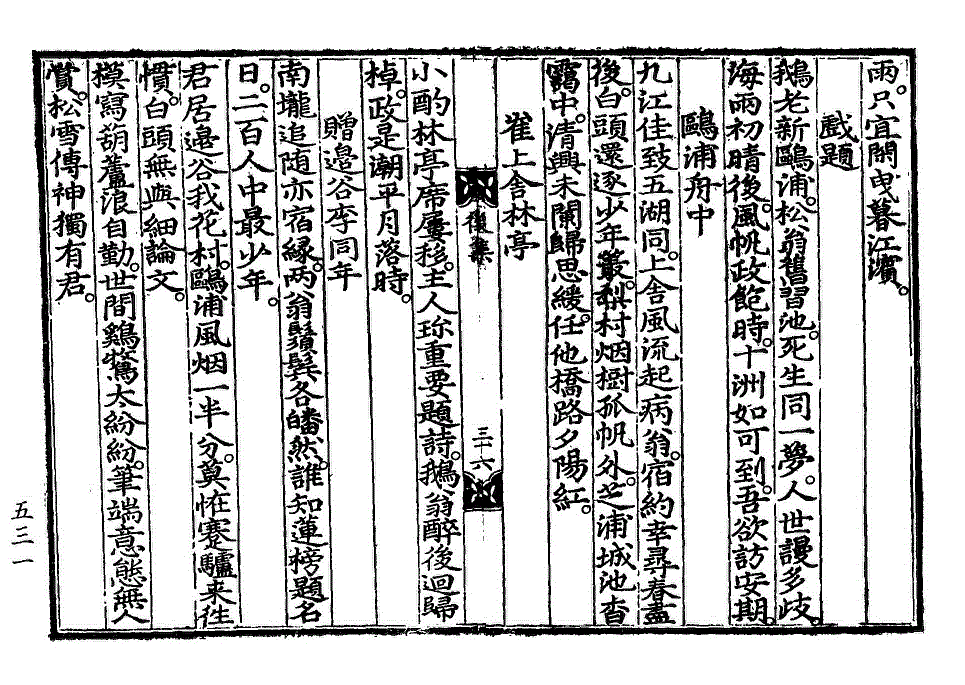 雨。只宜閑曳暮江濱。
戲題
鵝老新鷗浦。松翁舊習池。死生同一夢。人世謾多歧。
海雨初晴後。風帆政飽時。十洲如可到。吾欲訪安期。
鷗浦舟中
九江佳致五湖同。上舍風流起病翁。宿約幸尋春盡
後。白頭還逐少年叢。梨村烟樹孤帆外。芝浦城池杳
靄中。清興未闌歸思緩。任他橋路夕陽紅。
崔上舍林亭
後集
三六
小酌林亭席屢移。主人珍重要題詩。鵝翁醉後迴歸
棹。政是潮平月落時。
贈邊谷李同年
南壠追随亦宿緣。两翁鬚鬓各皤然。誰知蓮榜題名
日。二百人中最少年。
君居邊谷我花村。鷗浦風烟一半分。莫恠蹇驢来徃
慣。白頭無與細論文。
摸寫葫蘆浪自勤。世間鷄鶩太紛紛。筆端意態無人
賞。松雪傳神獨有君。
五三一